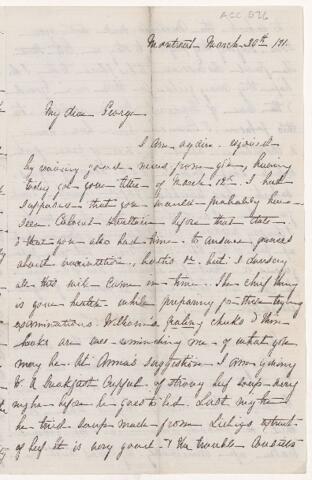 ACC 526
Montreal March 30th /71.
My dear George
I am again rejoiced
by receiving good news from you, having
today got your letter of March 12th. I had
supposed that you would probably have
seen Colonel Strattain before that date
& that you also had time to answer queries
about vaccination, but I daresay
all this will come in time. The chief thing
is your health while preparing for these trying
examinations. William's paling cheeks & thin
looks are reminding me of what you
may be. At Anna's suggestion I am giving
W. a breakfast cupful of strong beef soup every
night before he goes to bed. Last night
he tried soup made from Liebig's extract
of beef. It is very good & the trouble